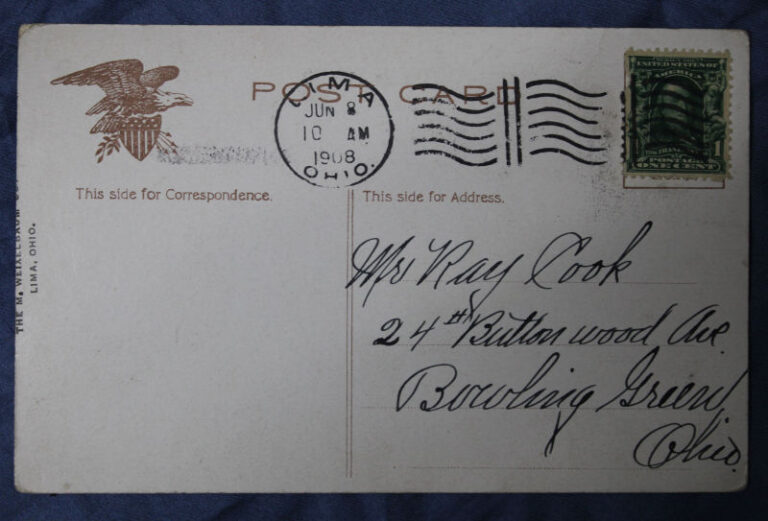 POST CARD
LIMA
JUN 8
10 AM
1908
OHIO.
UNITED STATES OF
AMERICA
1
POSTAGE
ONE CENT
This side for Correspondence.
This side for Address.
THE M. WEIXELBAUM
LIMA, OHIO.
Mr Ray Cook
24 # Buttonwood Ave.
Bowling Green,
Ohio.